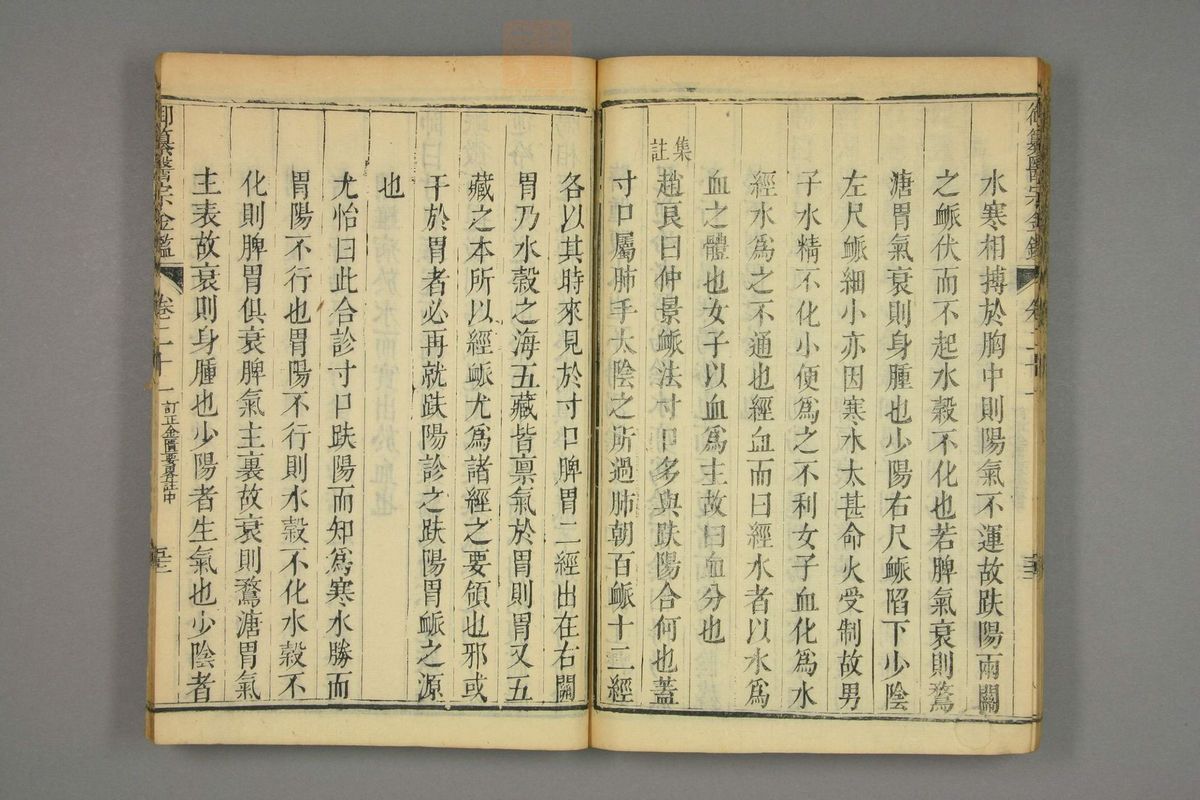 御纂醫宗金鑑
卷二十一
水寒相搏於胸中則陽氣不運故趺陽兩關
之脈伏而不起水穀不化也若脾氣衰則鶩
溏胃氣衰則身腫也少陽右尺脈陷下少陰
左尺脈細小亦因寒水太甚命火受制故男
子水精不化小便爲之不利女子血化爲水
經水爲之不通也經血而曰經水者以水爲
血之體也女子以血爲主故曰血分也
集註
趙良曰仲景脈法寸口多與趺陽合何也蓋
寸口屬肺手太陰之所過肺朝百脈十二經
各以其時來見於寸口脾胃二經出在右關
胃乃水穀之海五藏皆禀氣於胃則胃又五
藏之本所以經脈尤爲諸經之要領也邪或
干於胃者必再就趺陽診之趺陽胃脈之源
也
尤怡曰此合診寸口趺陽而知爲寒水勝而
胃陽不行也胃陽不行則水穀不化水穀不
化則脾胃俱衰脾氣主裏故衰則鶩溏胃氣
主表故衰則身腫也少陽者生氣也少陰者
御纂醫宗金鑑
卷二十一
訂正金匱要畧註中